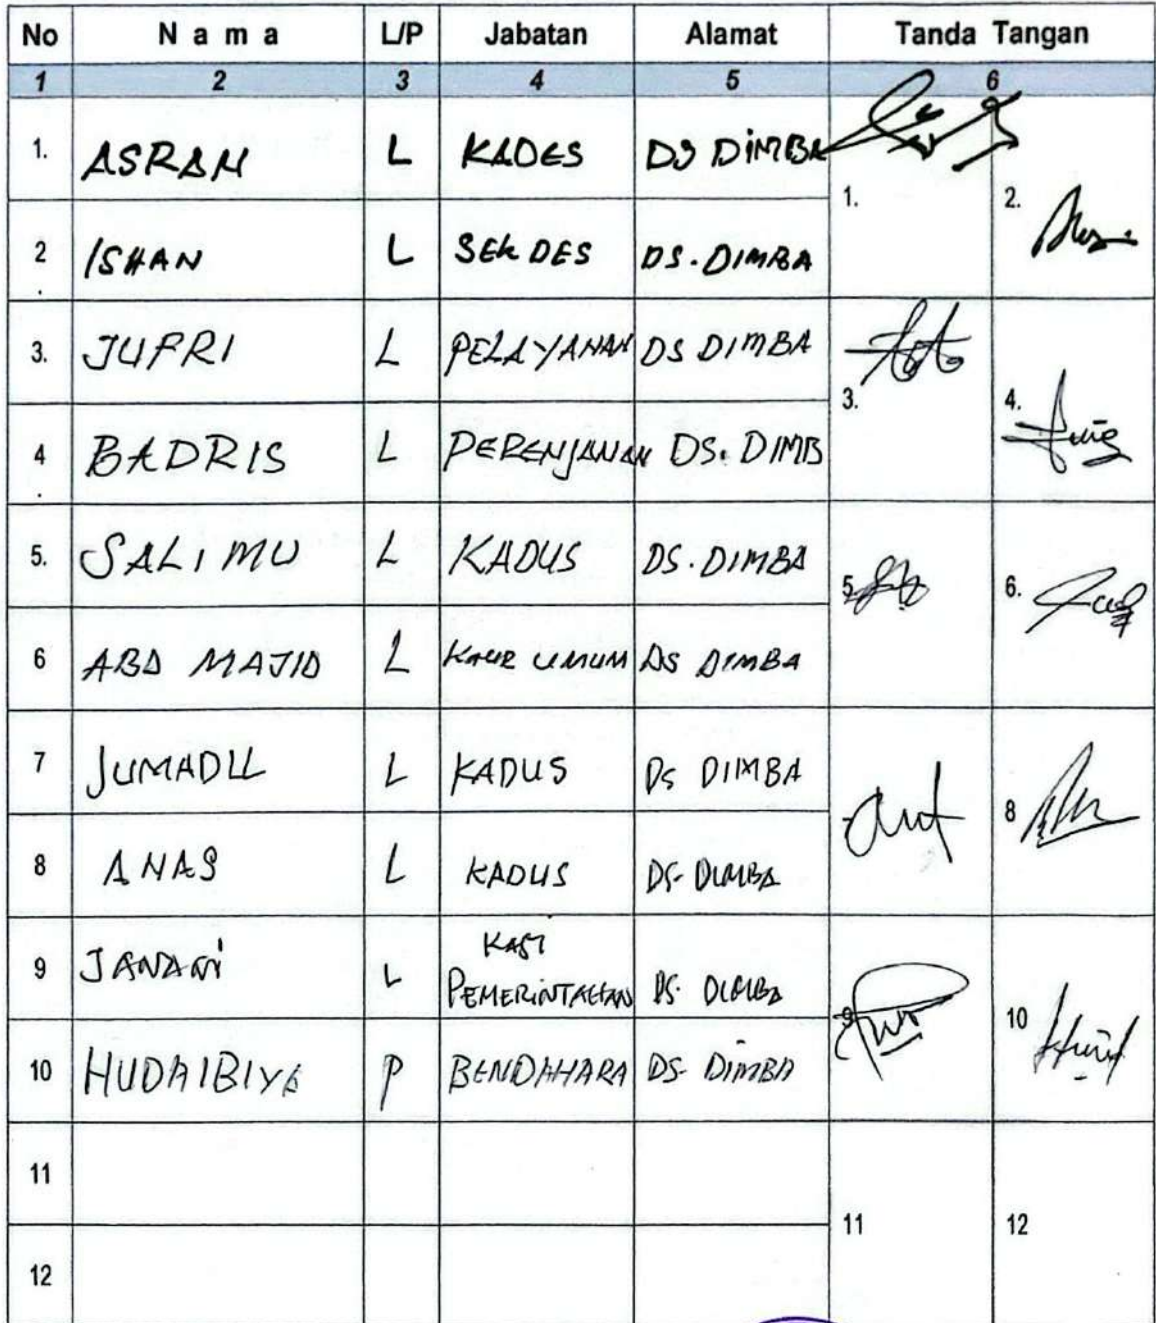 No N a m a L/P Jabatan Alamat Tanda Tangan
1 2 3 4 5 6
1. ASRAN L KADES DS DIMBA
1. 2.
2 ISHAN L SEKDES DS. DIMBA
3. JUFRI L PELAYANAN DS DIMBA
3. 4.
4 BADRIS L PERENJANAN DS. DIMB
5. SALIMU L KADUS DS. DIMBA
5. 6.
6 ABD MAJID L KAUR UMUM DS DIMBA
7 JUMADIL L KADUS DS DIMBA
8
8 ANAS L KADUS DS. DIMBA
KASI
9 L PEMERINTAHAN DS. DIMBA
9 10
10 HUDAIBIYA P BENDAHARA DS. DIMBA
11
11 12
12